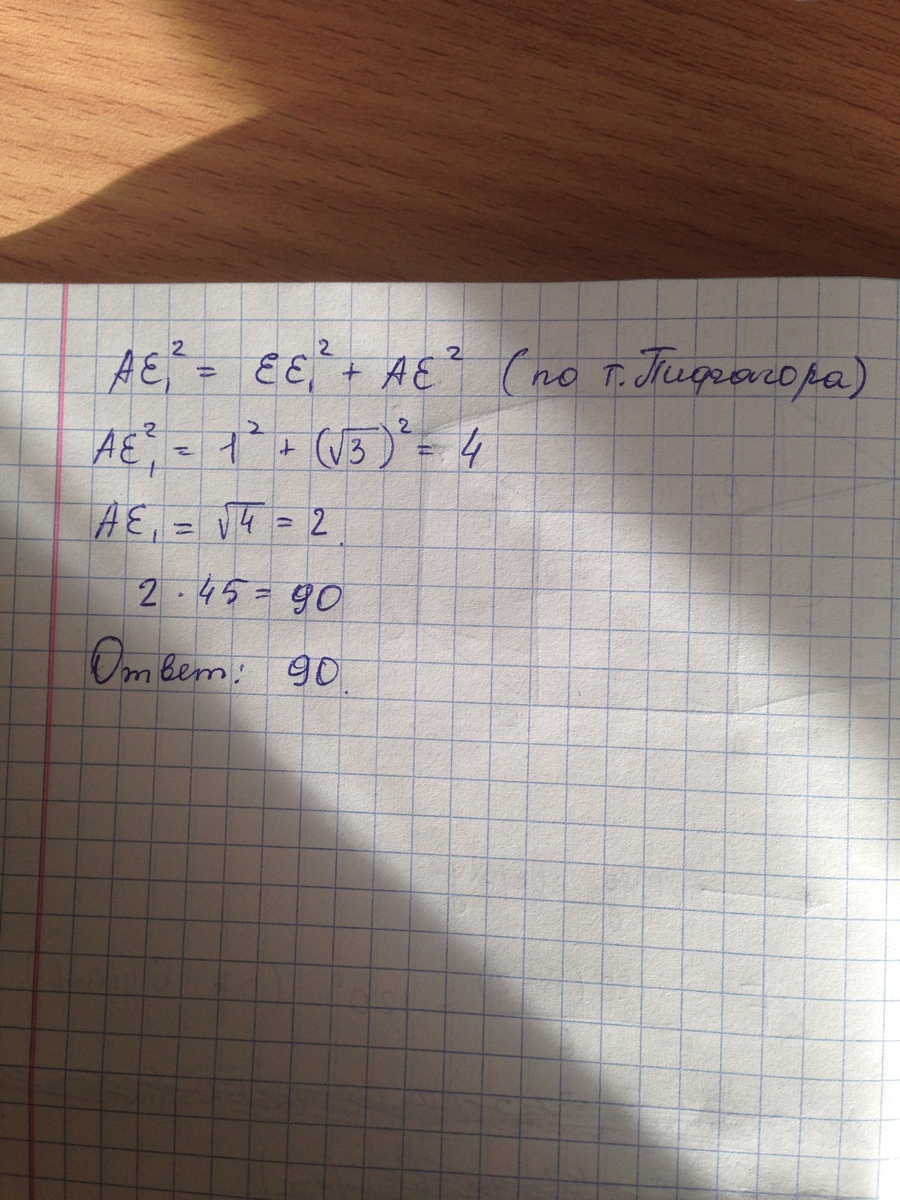 AE₁² = EE₁² + AE² (по т. Пифагора)
AE₁² = 1² + (√3)² = 4
AE₁ = √4 = 2.
2 · 45 = 90
Ответ: 90.